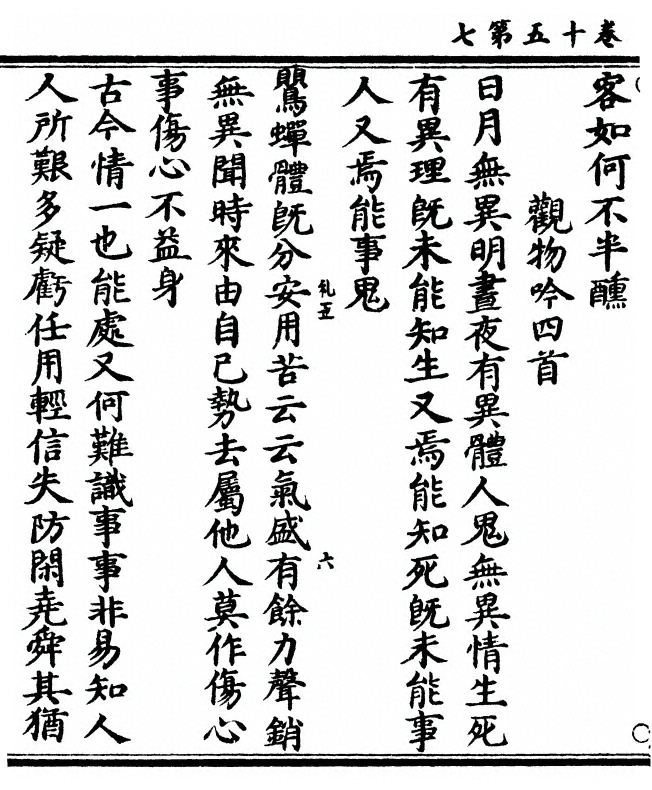 卷十五第七
客如何不半醺
觀物吟四首
日月無異明晝夜有異體人鬼無異情生死
有異理既未能知生又焉能知死既未能事
人又焉能事鬼
鸎蟬體既分安用苦云云氣盛有餘力聲銷
無異聞時來由自己勢去屬他人莫作傷心
事傷心不益身
古今情一也能處又何難識事事非易知人
人所艱多疑虧任用輕信失防閑堯舜其猶